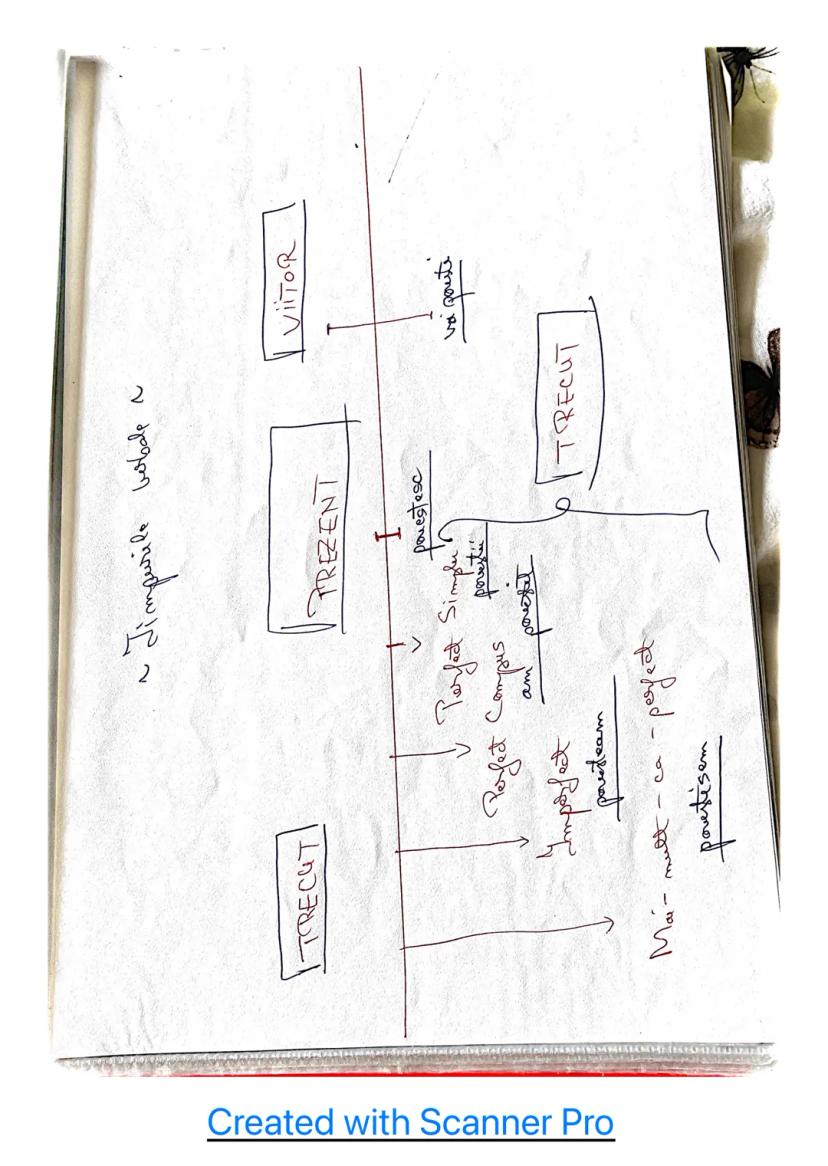 ~ Timpurile verbale ~
TRECUT
PREZENT
VIITOR
povestesc
voi povesti
Perfect Simplu
povestii
Perfect Compus
am povestit
Imperfect
povesteam
Mai-mult-ca-perfect
povestisem
TRECUT
Created with Scanner Pro